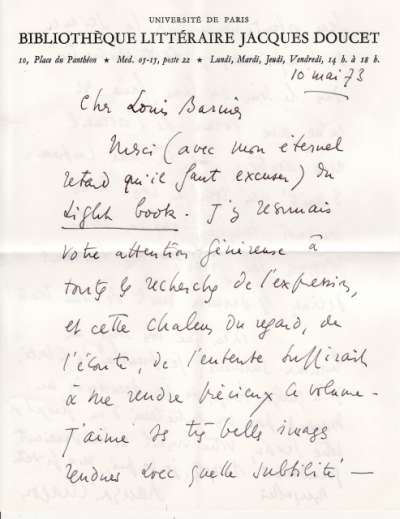 UNIVERSITÉ DE PARIS
BIBLIOTHÈQUE LITTÉRAIRE JACQUES DOUCET
10, Place du Panthéon ★ Med. 05-15, poste 22 ★ Lundi, Mardi, Jeudi, Vendredi, 14 h. à 18 h.
10 mai 73
Cher Louis Barnier
Merci (avec mon éternel
retard qu'il faut excuser) du
Light book. J'y reconnais
votre attention généreuse à
toute la recherche de l'expression,
et cette chaleur du regard, de
l'écoute, de l'entente suffirait
à me rendre précieux ce volume.
J'aime ses très belles images
rendues avec quelle subtilité —